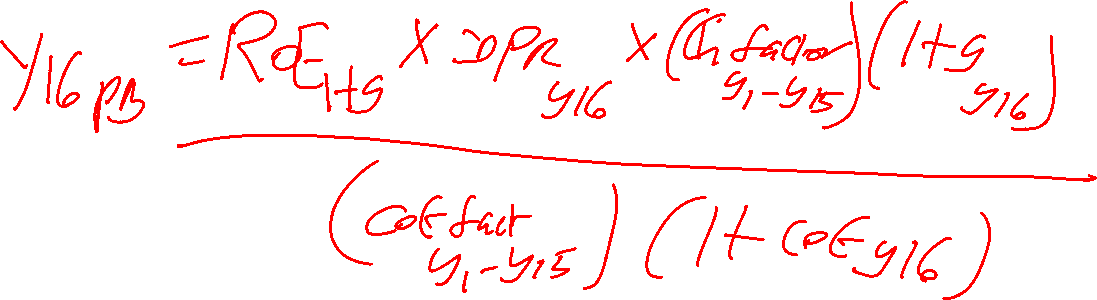 Y16 PB = ROE 1+g X DPR y16 X (Ch factor y1-y15) (1+g y16)
(COE fact y1-y15) (1+ COE y16)